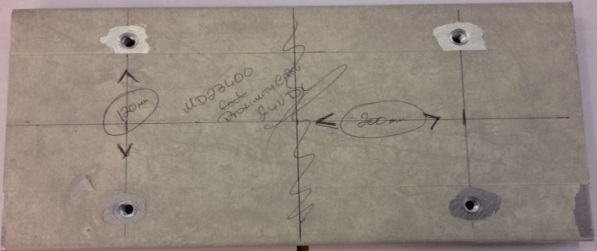 120mm
MD23400
Proximity Card
24V DC
200mm